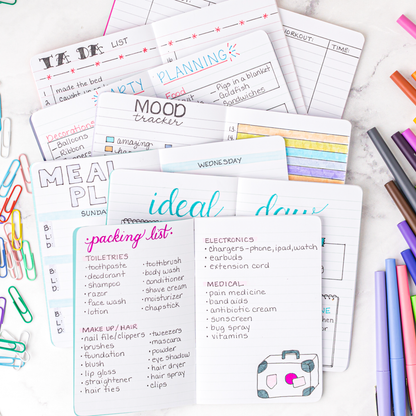 TA DA LIST
1 made the bed
WORKOUT: TIME:
PARTY PLANNING
Decorations
Balloons
Ribbon
Food
Pigs in a blanket
Goldfish
Sandwishes
MOOD
tracker
amazing
13
MEAL
PL
SUNDA
WEDNESDAY
B:
L:
D:
B:
L:
D:
ideal day
packing list
TOILETRIES
• toothpaste
• deodorant
• shampoo
• razor
• face wash
• lotion
• toothbrush
• body wash
• conditioner
• shave cream
• moisturizer
• chapstick
MAKE UP/HAIR
• nail file/clippers
• brushes
• foundation
• blush
• lip gloss
• straightener
• hair ties
• tweezers
• mascara
• powder
• eye shadow
• hair dryer
• hair spray
• clips
ELECTRONICS
• chargers-phone, ipad, watch
• earbuds
• extension cord
MEDICAL
• pain medicine
• band aids
• antibiotic cream
• sunscreen
• bug spray
• vitamins